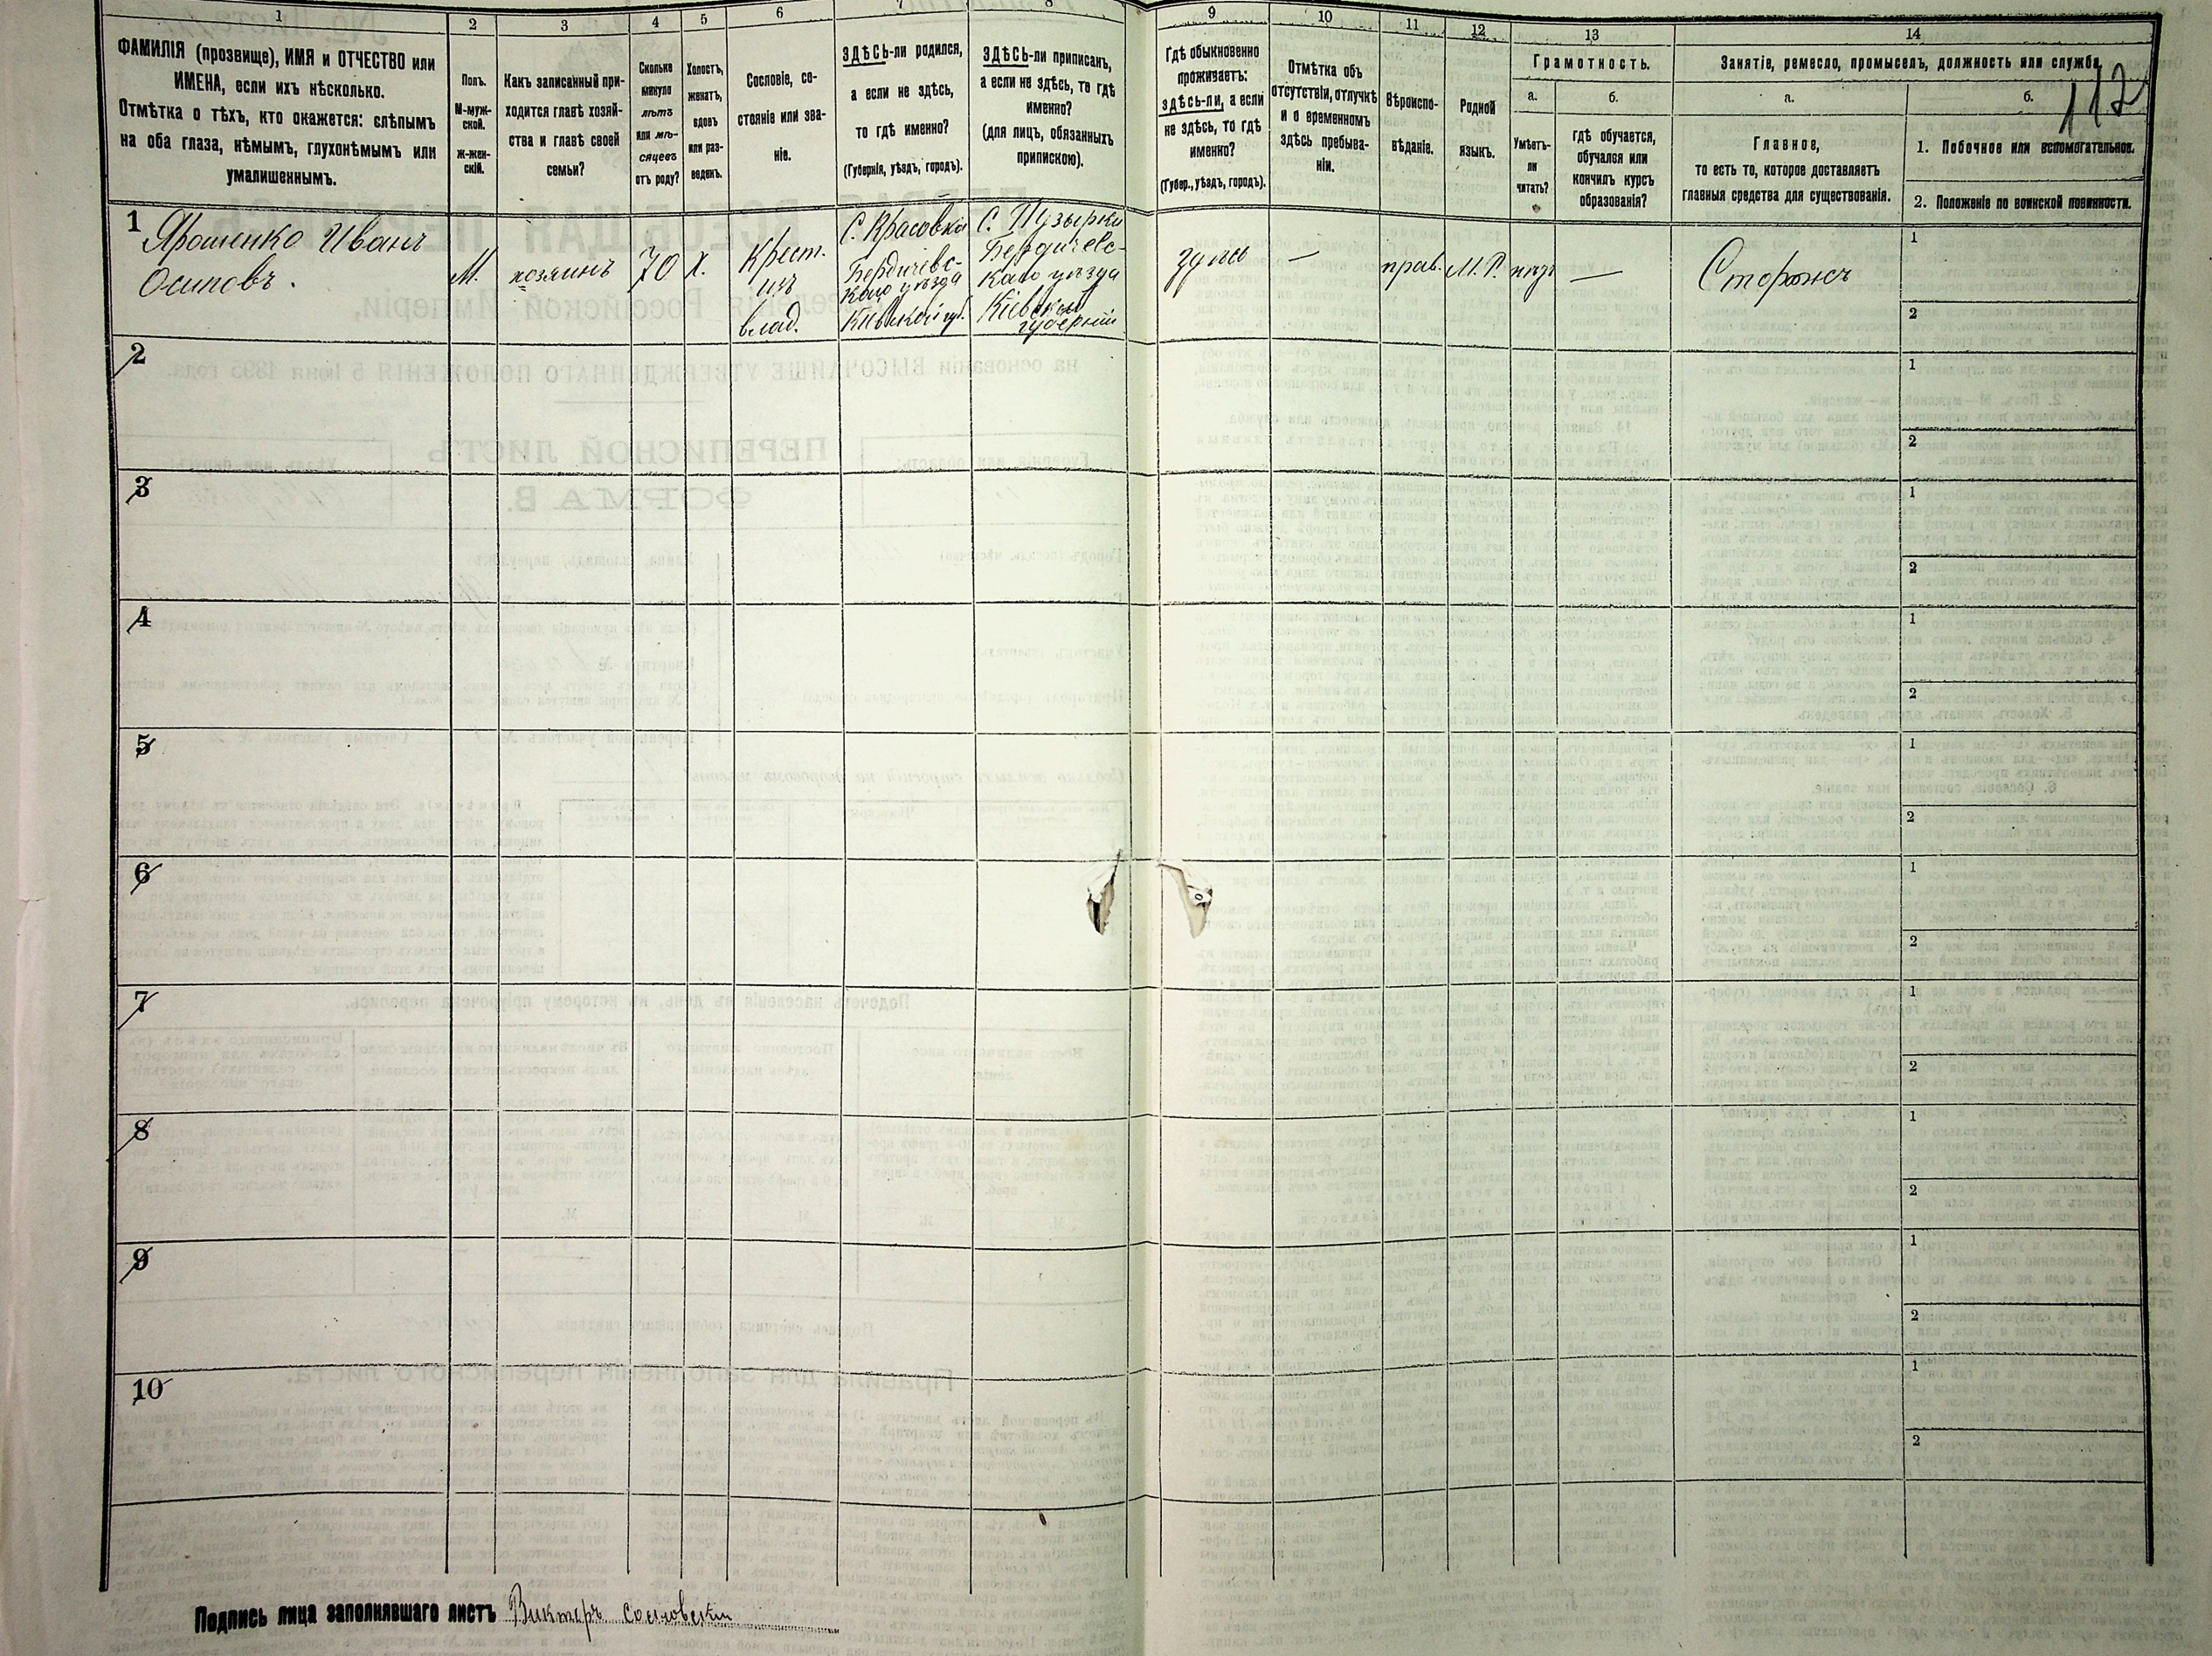 1
ФАМИЛІЯ (прозвище), ИМЯ и ОТЧЕСТВО или
ИМЕНА, если ихъ нѣсколько.
Отмѣтка о тѣхъ, кто окажется: слѣпымъ
на оба глаза, нѣмымъ, глухонѣмымъ или
умалишеннымъ.
2
Полъ.
М-муж-
ской.
ж-жен-
скій.
3
Какъ записанный при-
ходится главѣ хозяй-
ства и главѣ своей
семьи?
4
Сколько
минуло
лѣтъ
или мѣ-
сяцевъ
отъ роду?
5
Холостъ,
женатъ,
вдовъ
или раз-
веденъ.
6
Сословіе, со-
стояніе или зва-
ніе.
7
ЗДѢСЬ-ли родился,
а если не здѣсь,
то гдѣ именно?
(Губернія, уѣздъ, городъ).
8
ЗДѢСЬ-ли приписанъ,
а если не здѣсь, то гдѣ
именно?
(для лицъ, обязанныхъ
припискою).
9
Гдѣ обыкновенно
проживаетъ:
здѣсь-ли, а если
не здѣсь, то гдѣ
именно?
(Губер., уѣздъ, городъ).
10
Отмѣтка объ
отсутствіи, отлучкѣ
и о временномъ
здѣсь пребыва-
ніи.
11
Вѣроиспо-
вѣданіе.
12
Родной
языкъ.
13
Грамотность.
а.
Умѣетъ-
ли
читать?
б.
гдѣ обучается,
обучался или
кончилъ курсъ
образованія?
14
Занятіе, ремесло, промыселъ, должность или служба.
112
а.
Главное,
то есть то, которое доставляетъ
главныя средства для существованія.
б.
1. Побочное или вспомогательное.
2. Положеніе по воинской повинности.
1
Ярошенко Иванъ
Осиповъ.
М.
хозяинъ
70
Х.
Крест.
изъ
влад.
С. Красовка
Бердичевс-
каго уѣзда
Кіевской губ.
С. Пузырки
Бердичевс-
каго уѣзда
Кіевской
губерніи
здѣсь
—
прав.
М. Р.
—
Сторожъ
1
2
2
1
2
3
1
2
4
1
2
5
1
2
6
1
2
7
1
2
8
1
2
9
1
2
10
1
2
Подпись лица заполнявшаго листъ Викторъ